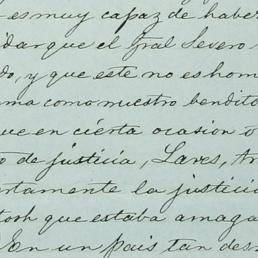 es muy capaz de haber
dar que el Gral Severo
do, y que este no es hom
ma como nuestro bendito
ue en cierta ocasion o
o de justicia, Lares, 
rtamente la justicia
tosh que estaba amaga
En un pais tan des